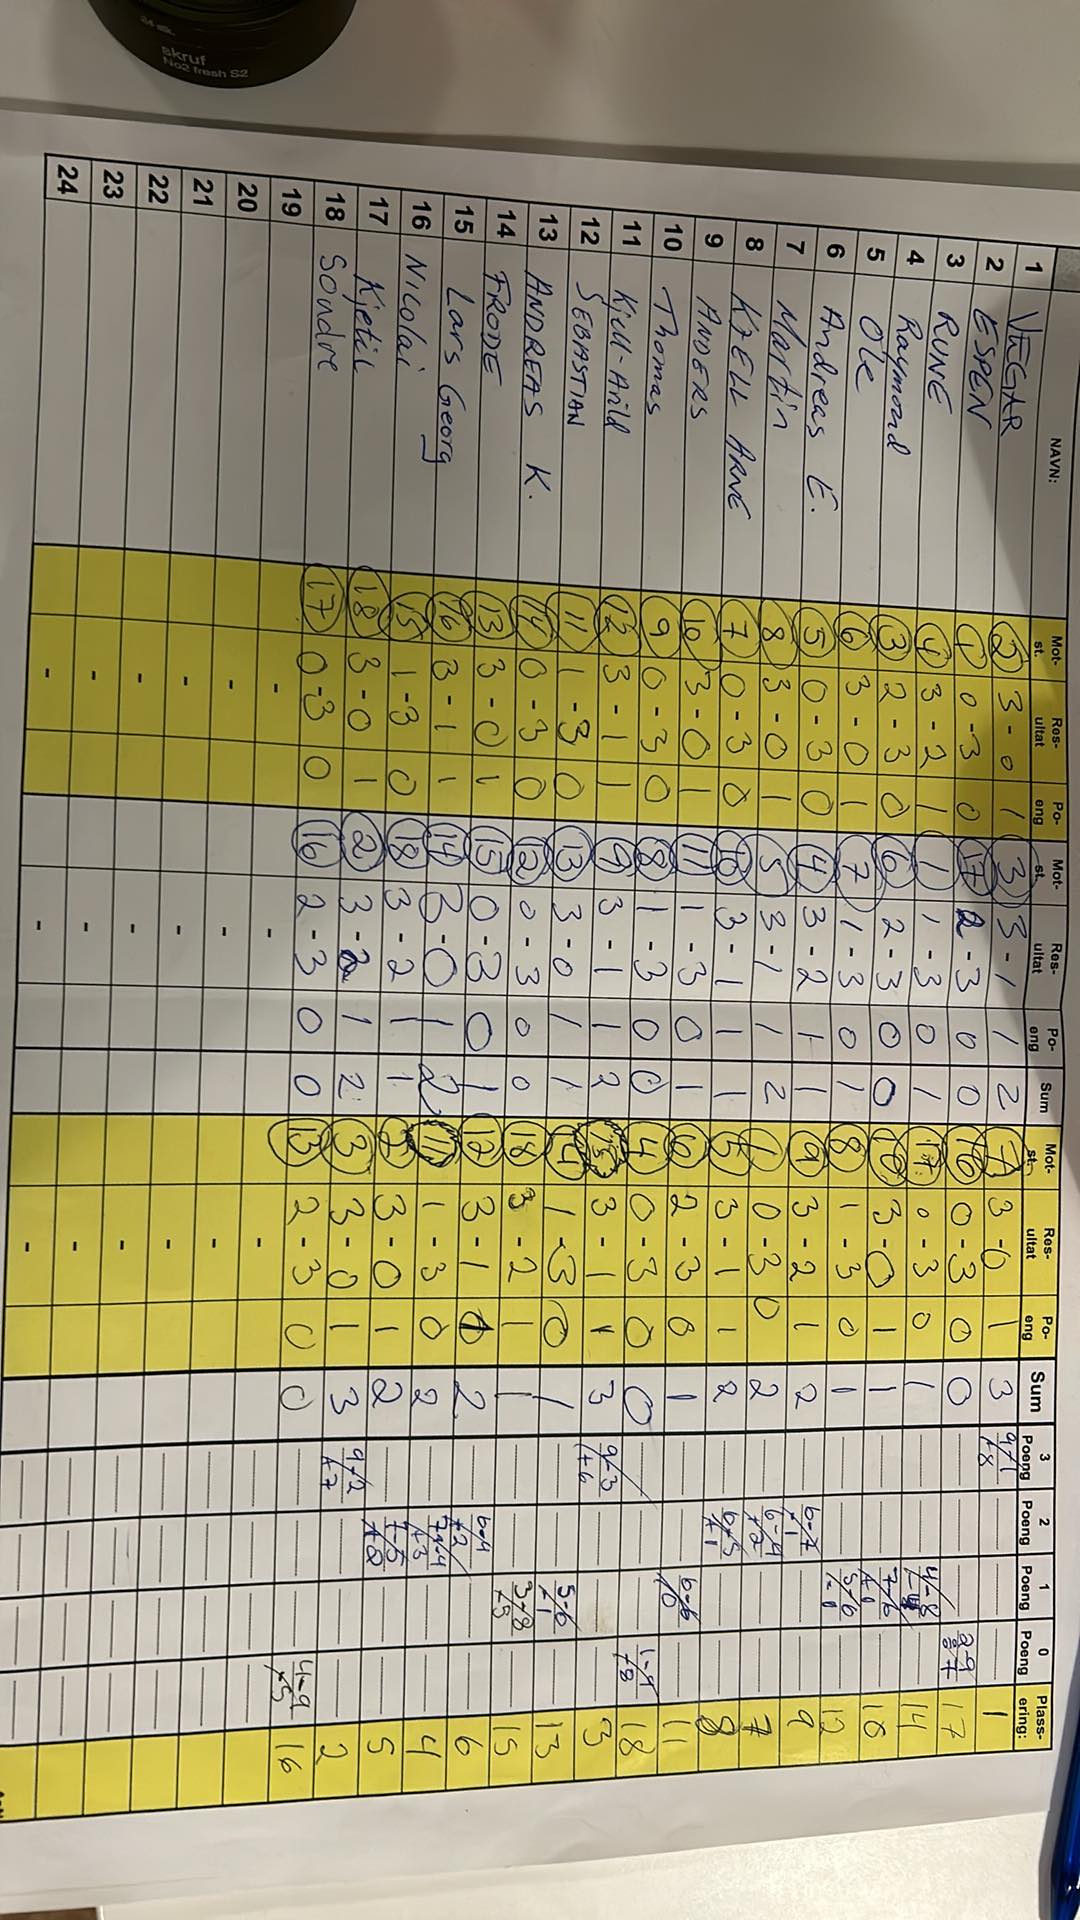 skruf
No2 fresh S2
NAVN: Mot-st. Res-ultat Po-eng Mot-st. Res-ultat Po-eng Sum Mot-st. Res-ultat Po-eng Sum 3 Poeng 2 Poeng 1 Poeng 0 Poeng Plass-ering:
1 VEGAR 2 3-0 1 3 3-1 1 2 7 3-0 1 3 9-1 +8 1
2 ESPEN 1 0-3 0 17 2-3 0 0 16 0-3 0 0 2-9 -7 17
3 RUNE 4 3-2 1 1 1-3 0 1 17 0-3 0 1 4-8 14
4 Raymond 3 2-3 0 6 2-3 0 0 10 3-0 1 1 7-6 10
5 Ole 6 3-0 1 7 1-3 0 1 8 1-3 0 1 5-6 12
6 Andreas E. 5 0-3 0 4 3-2 1 1 9 3-2 1 2 6-7 -1 9
7 Martin 8 3-0 1 5 3-1 1 2 1 0-3 0 2 6-4 +2 7
8 KJELL ARNE 7 0-3 0 10 3-1 1 1 5 3-1 1 2 6-5 +1 8
9 ANDERS 10 3-0 1 11 1-3 0 1 6 2-3 0 1 6-6 0 11
10 Thomas 9 0-3 0 8 1-3 0 0 4 0-3 0 0 1-9 -8 18
11 Kjell-Arild 12 3-1 1 9 3-1 1 2 15 3-1 1 3 9-3 +6 3
12 SEBASTIAN 11 1-3 0 13 3-0 1 1 14 1-3 0 1 5-6 -1 13
13 ANDREAS K. 14 0-3 0 12 0-3 0 0 18 3-2 1 1 3-8 -5 15
14 FRODE 13 3-0 1 15 0-3 0 1 12 3-1 1 2 6-4 +2 6
15 Lars Georg 16 3-1 1 14 3-0 1 2 11 1-3 0 2 7-4 +3 4
16 Nicolai 15 1-3 0 18 3-2 1 1 2 3-0 1 2 7-5 +2 5
17 Kjetil 18 3-0 1 2 3-2 1 2 3 3-0 1 3 9-2 +7 2
18 Sondre 17 0-3 0 16 2-3 0 0 13 2-3 0 0 4-9 -5 16
19 - - -
20 - - -
21 - - -
22 - - -
23 - - -
24 - - -